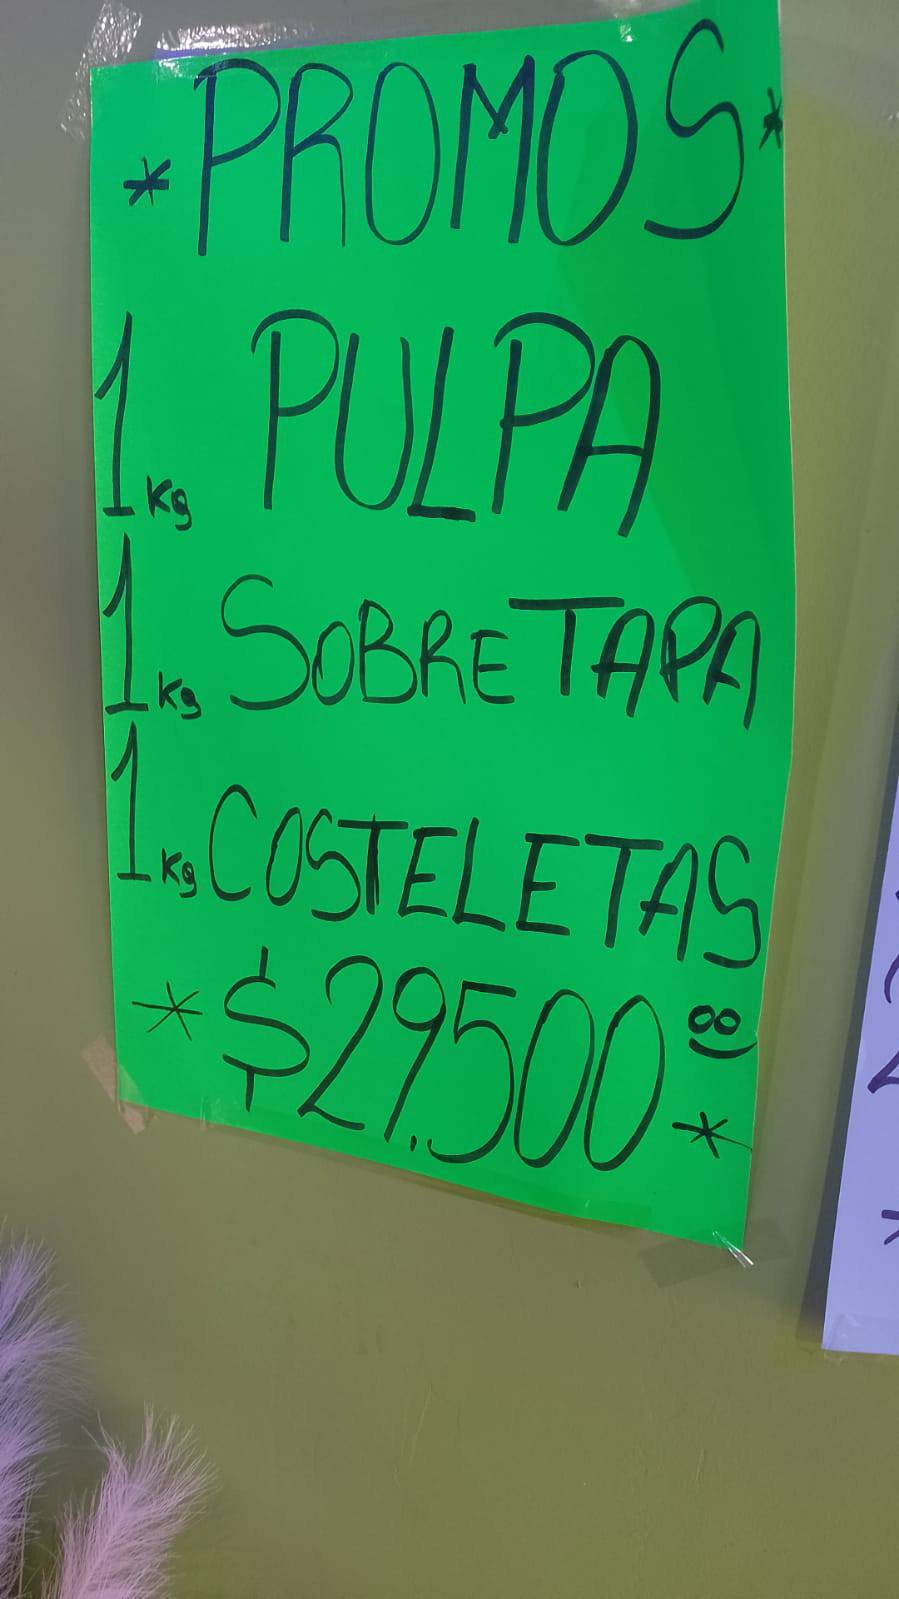 * PROMOS *
1 Kg PULPA
1 Kg SOBRETAPA
1 Kg COSTELETAS
* $29.500 *